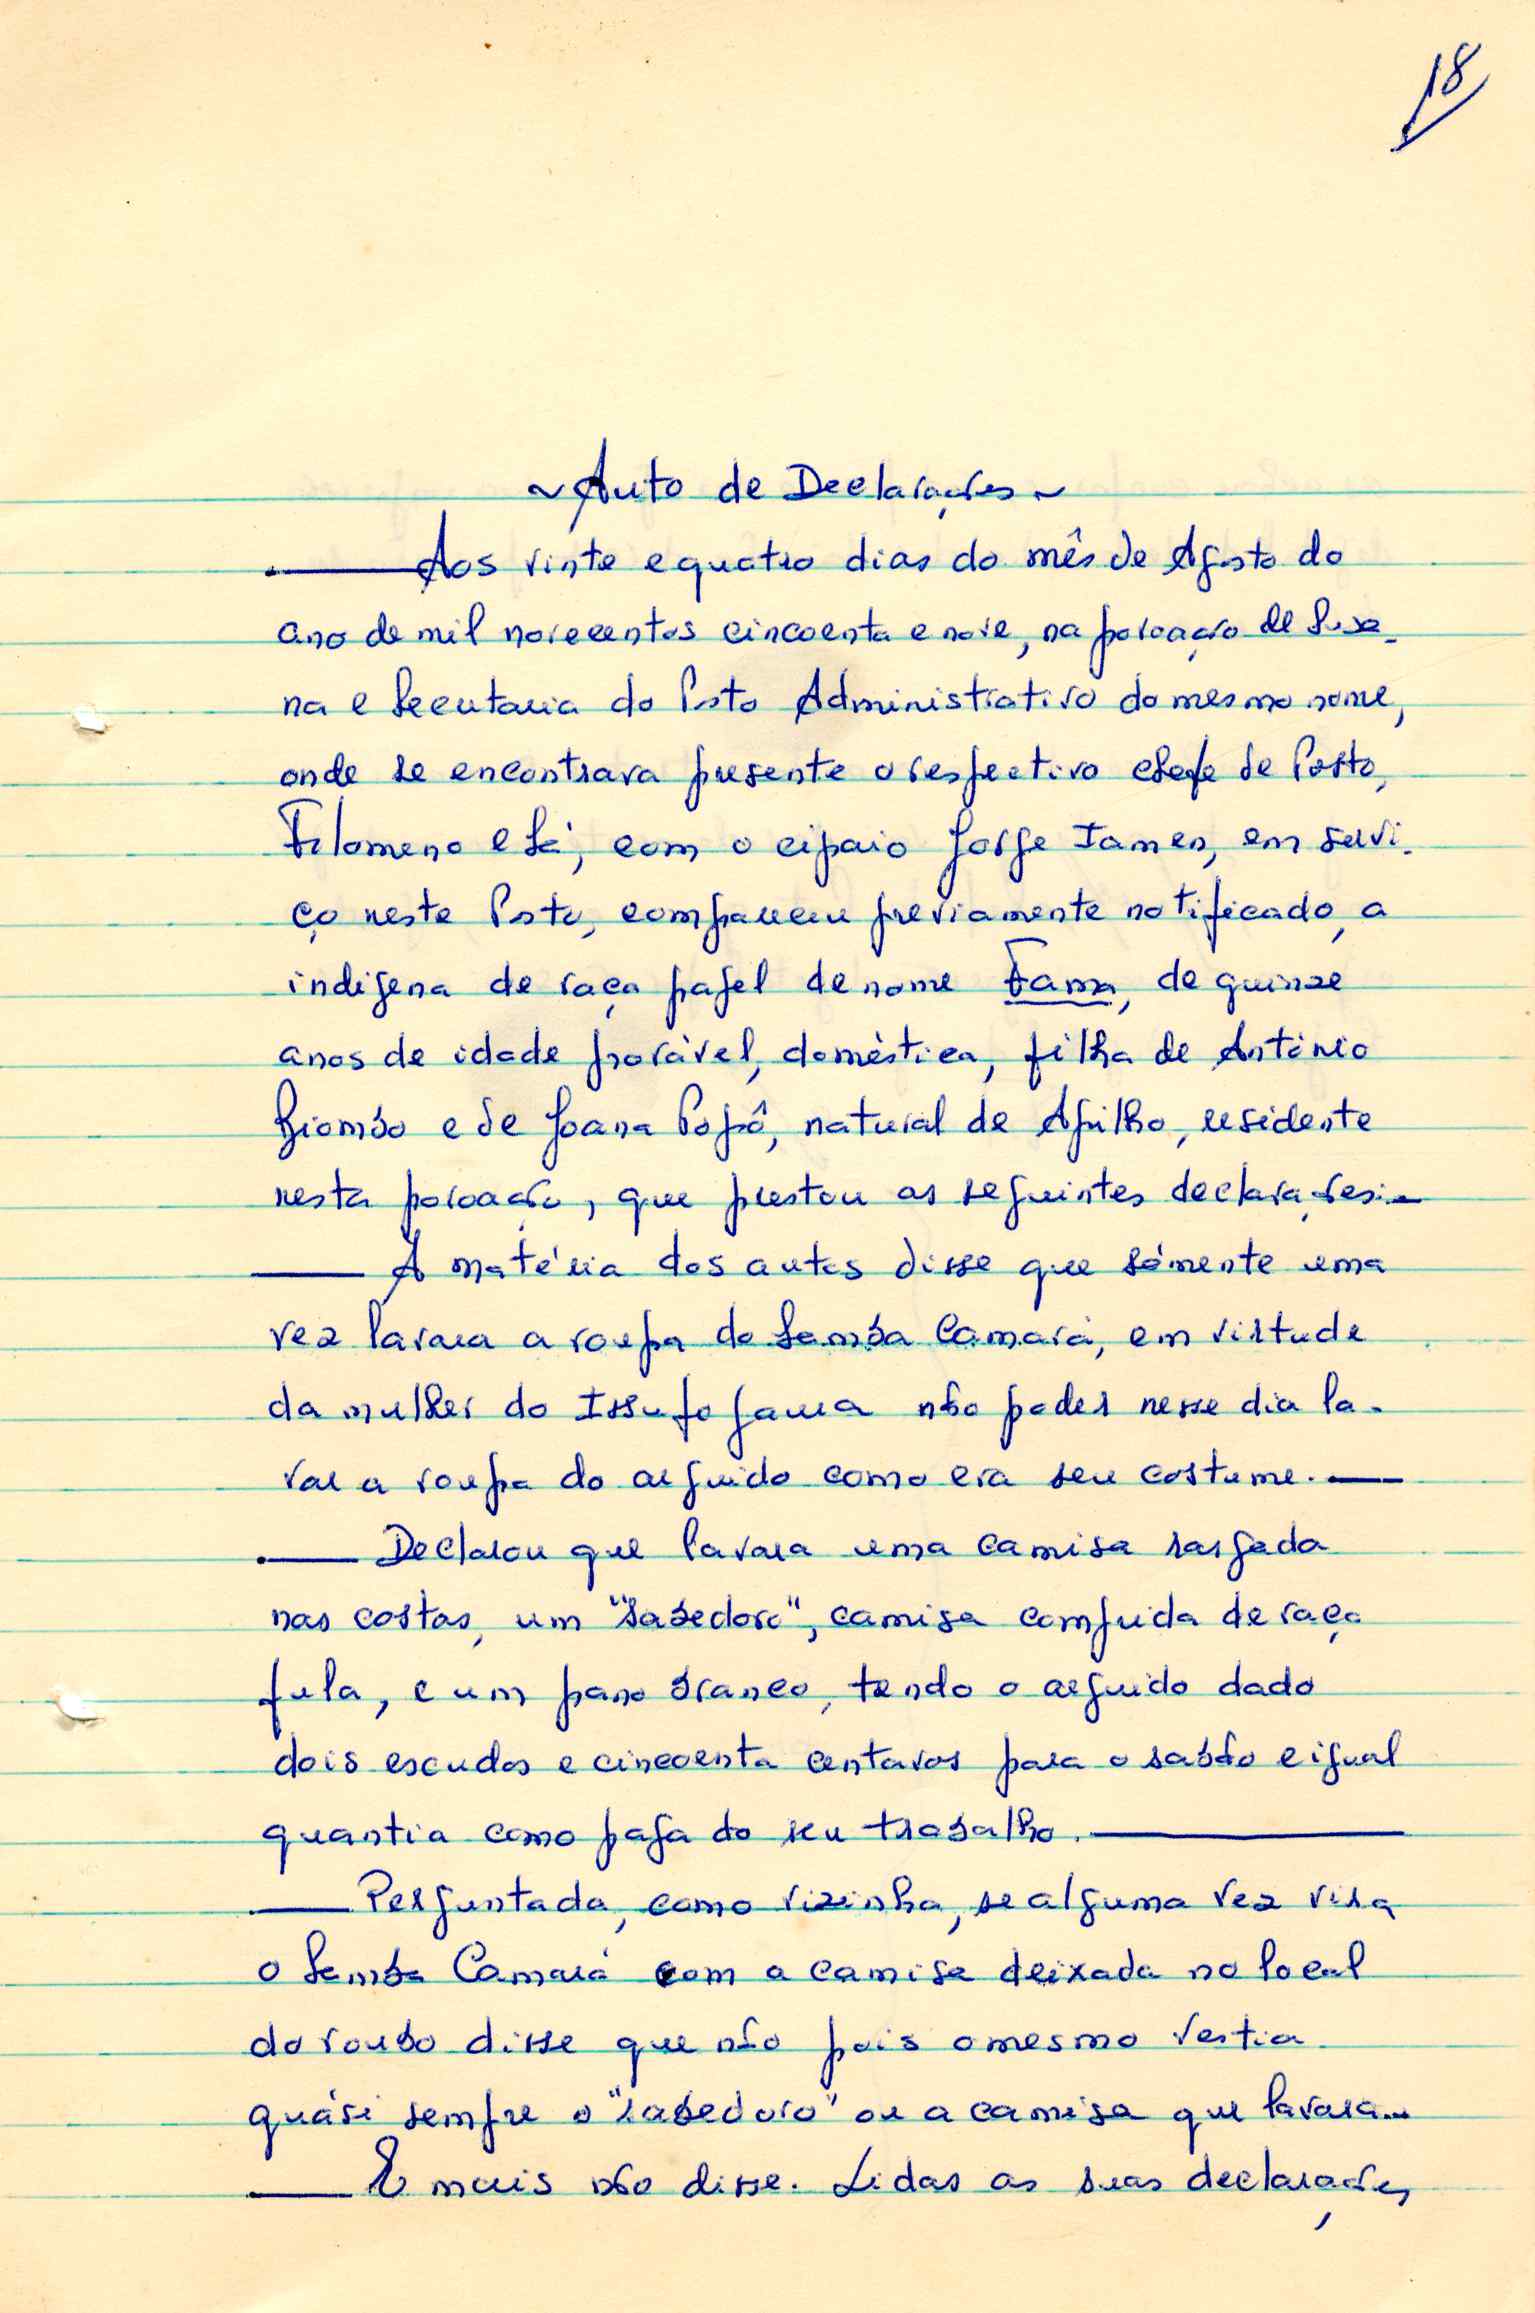 18
~ Auto de Declarações ~
Aos vinte e quatro dias do mês de Agosto do
ano de mil novecentos cincoenta e nove, na povoação de Susa-
na e Secretaria do Posto Administrativo do mesmo nome,
onde se encontrava presente o respectivo chefe de Posto,
Filomeno e Sá, com o cipaio Jorge Iamen, em servi-
ço neste Posto, compareceu previamente notificado, a
indígena de raça papel de nome Fama, de quinze
anos de idade provável, doméstica, filha de António
Biombo e de Joana Popô, natural de Apilho, residente
nesta povoação, que prestou as seguintes declarações:-
À matéria dos autos disse que sómente uma
vez lavara a roupa do Samba Camará, em virtude
da mulher do Issufo Jaura não poder nesse dia la-
var a roupa do arguido como era seu costume.
Declarou que lavara uma camisa rasgada
nas costas, um "sabedoro", camisa comprida de raça
fula, e um pano branco, tendo o arguido dado
dois escudos e cincoenta centavos para o sabão e igual
quantia como paga do seu trabalho.
Perguntada, como vizinha, se alguma vez vira
o Samba Camará com a camisa deixada no local
do roubo disse que não pois o mesmo vestia
quási sempre o "sabedoro" ou a camisa que lavara...
E mais não disse. Lidas as suas declarações,